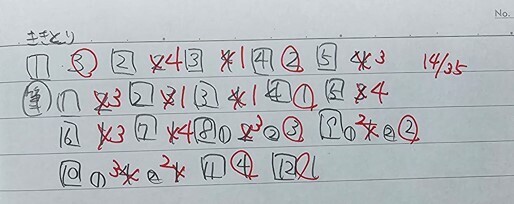 No.
ききとり
1 3 2 4 3 1 4 2 5 3 14/35
筆 1 3 2 1 3 1 4 1 5 4
6 3 7 4 8 ① 3 ② 3 9 ① 2 ② 2
10 ① 3 ② 2 11 4 12 1